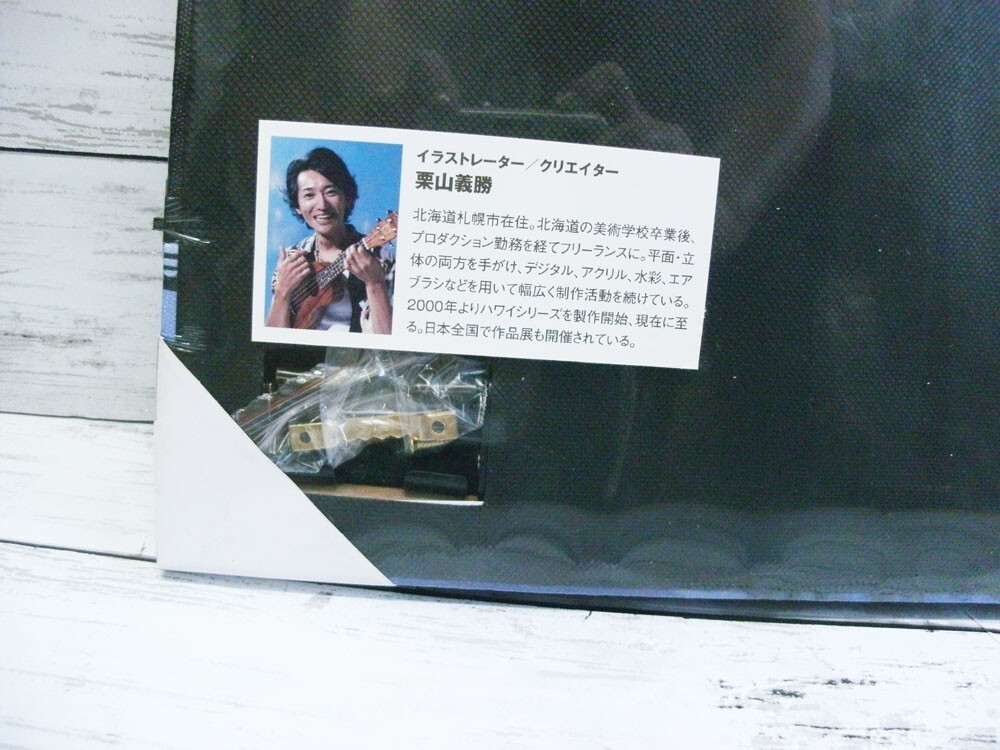 イラストレーター／クリエイター
栗山義勝
北海道札幌市在住。北海道の美術学校卒業後、
プロダクション勤務を経てフリーランスに。平面・立
体の両方を手がけ、デジタル、アクリル、水彩、エア
ブラシなどを用いて幅広く制作活動を続けている。
2000年よりハワイシリーズを製作開始、現在に至
る。日本全国で作品展も開催されている。